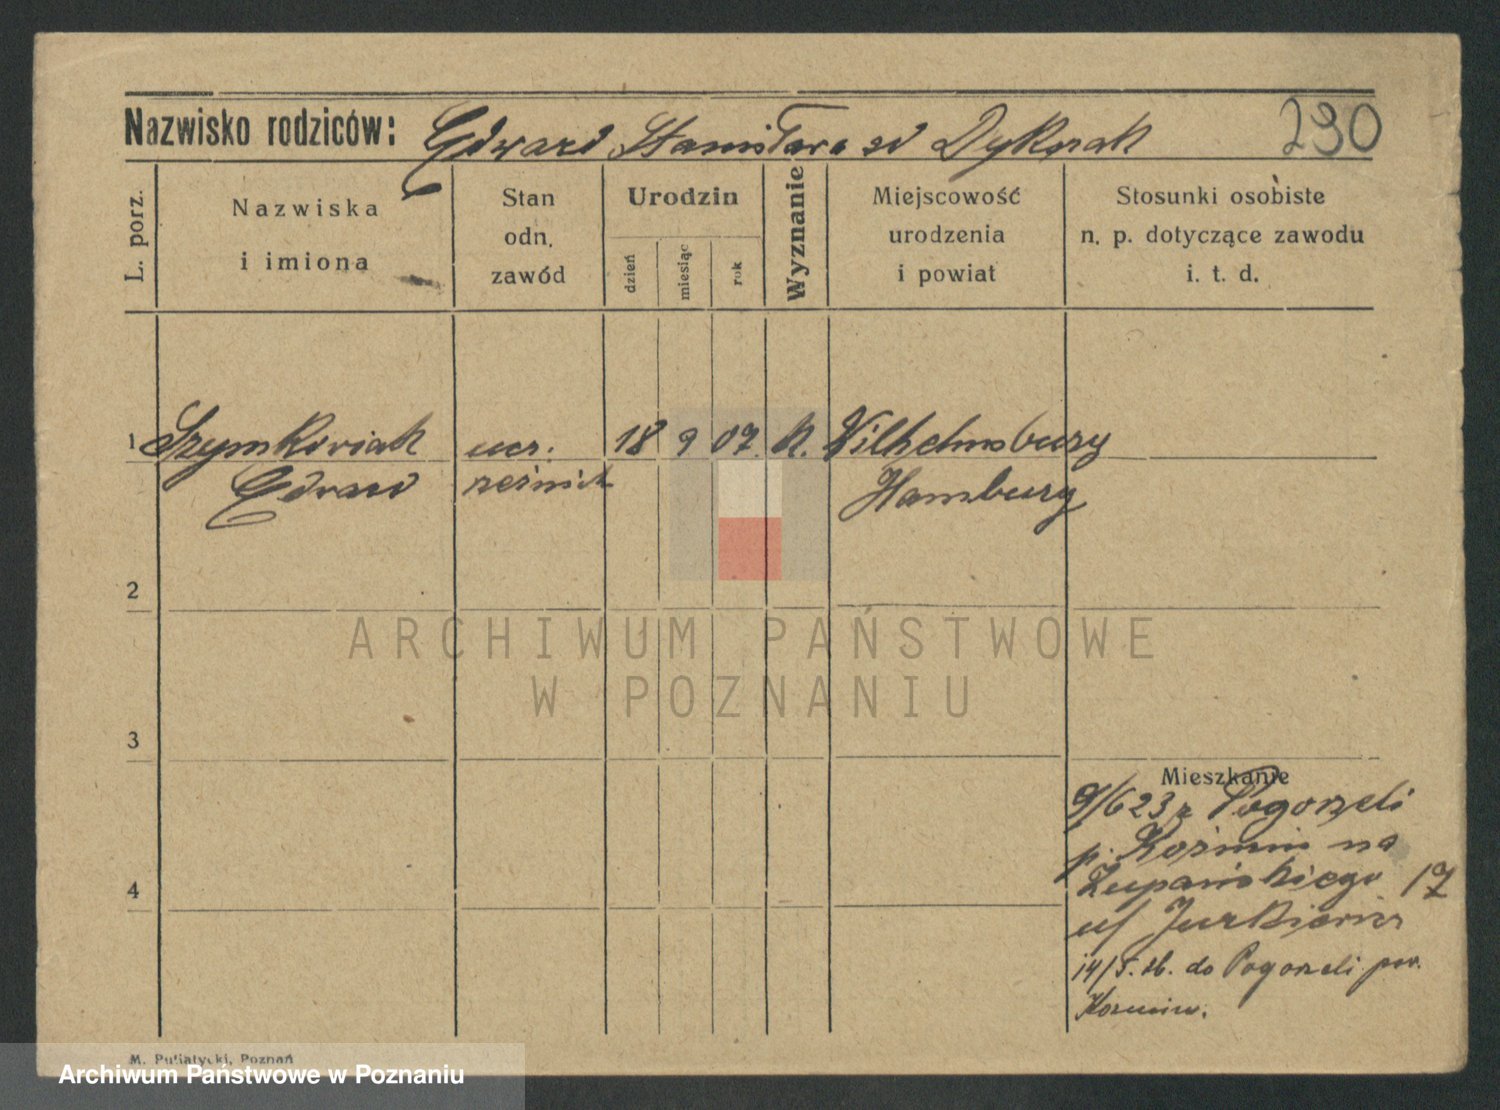 Nazwisko rodziców: Edward Stanisława zd Dykczak 290
L. porz.
Nazwiska
i imiona
Stan
odn.
zawód
Urodzin
dzień
miesiąc
rok
Wyznanie
Miejscowość
urodzenia
i powiat
Stosunki osobiste
n. p. dotyczące zawodu
i. t. d.
1 Szymkowiak ucz. 18 9 07. k. Wilhelmsburg
Edward rzeźnick Hamburg
2
ARCHIWUM PAŃSTWOWE
W POZNANIU
3
Mieszkanie
9/6 23 z Pogorzeli
p. Koźmin na
Żupańskiego 17
u/ Jurkiewicz
4
14/5. 26. do Pogorzeli pow.
Koźmin.
M. Putiatycki, Poznań
Archiwum Państwowe w Poznaniu